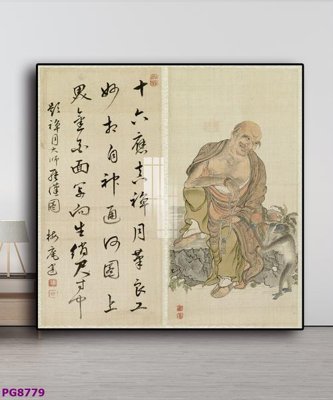 十六應真禪月筆良工
妙相自神通何圖上
界金面寫向生綃尺寸中
題禪月大師羅漢圖
PG8779